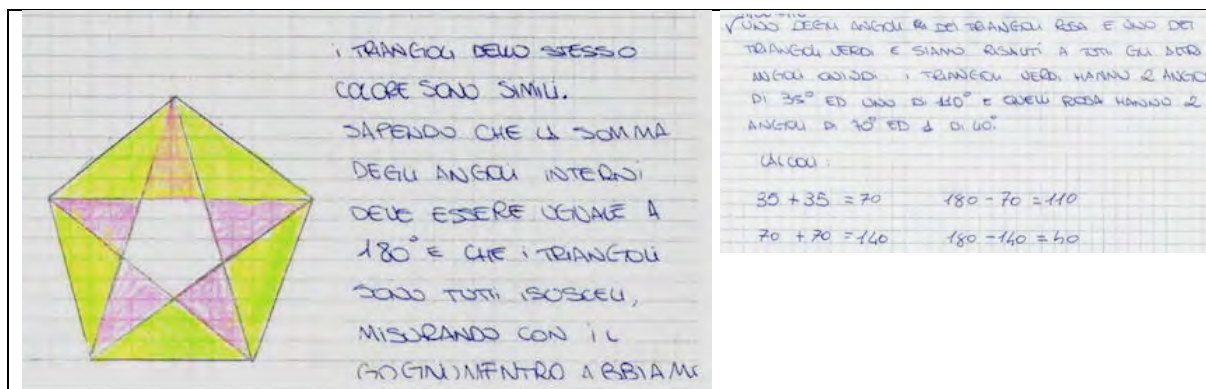 i TRIANGOLI DELLO STESSO
COLORE SONO SIMILI.
SAPENDO CHE LA SOMMA
DEGLI ANGOLI INTERNI
DEVE ESSERE UGUALE A
180° E CHE i TRIANGOLI
SONO TUTTI ISOSCELI,
MISURANDO CON IL
GOGNIOMENTRO ABBIAMO
UNO DEGLI ANGOLI DEI TRIANGOLI ROSA E UNO DEI
TRIANGOLI VERDI E SIAMO RISALITI A TUTTI GLI ALTRI
ANGOLI QUINDI i TRIANGOLI VERDI HANNO 2 ANGO
DI 35° ED UNO DI 110° E QUELLI ROSA HANNO 2
ANGOLI DI 70° ED 1 DI 40°.
CALCOLI:
35 + 35 = 70 180 - 70 = 110
70 + 70 = 140 180 - 140 = 40